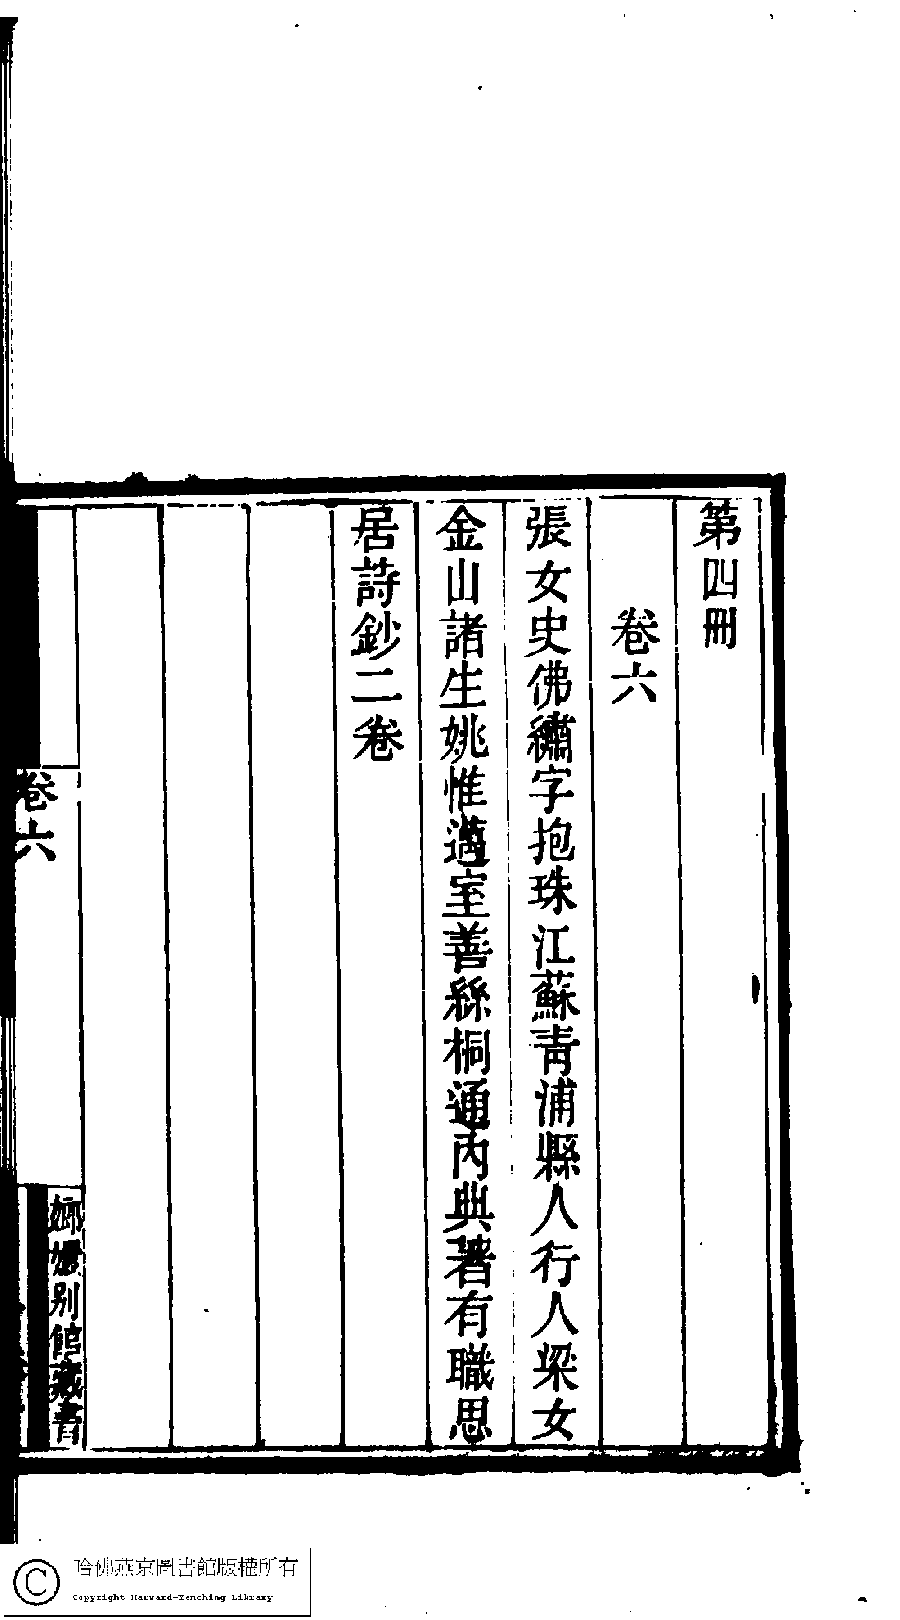 第四冊
卷六
張女史佛繡字抱珠江蘇青浦縣人行人梁女
金山諸生姚惟邁室善絲桐通內典著有職思
居詩鈔二卷
卷六
嫏嬛別館藏書
哈佛燕京圖書館版權所有
Copyright Harvard-Yenching Library